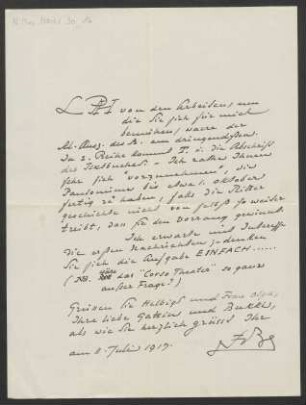 L P I von den Arbeiten, um
die Sie sich für mich
bemühen, wäre der
Kl. Ausz. des am dringendsten.
In 2. Reihe kommt die Abschrift
des Textbuches. – Ich rathe Ihnen
sehr sich vorzunehmen, die
Pantomime bis etwa 1. Oktober
fertig zu haben, falls die
geschichte nicht von selbst so weiter
treibt, das sie den Vorrang gewinnt
Ich erwarte mit Interesse
die ersten Nachrichten; denken
Sie sich die Aufgabe EINFACH.....
(NB. wäre das "Corso Theater" so ganz
außer Frage?)
Grüssen Sie Helbigs und Frau
Ihre liebe Gattin und
als wie Sie herzlich grüsst Ihr
am 2. Juli 1917.